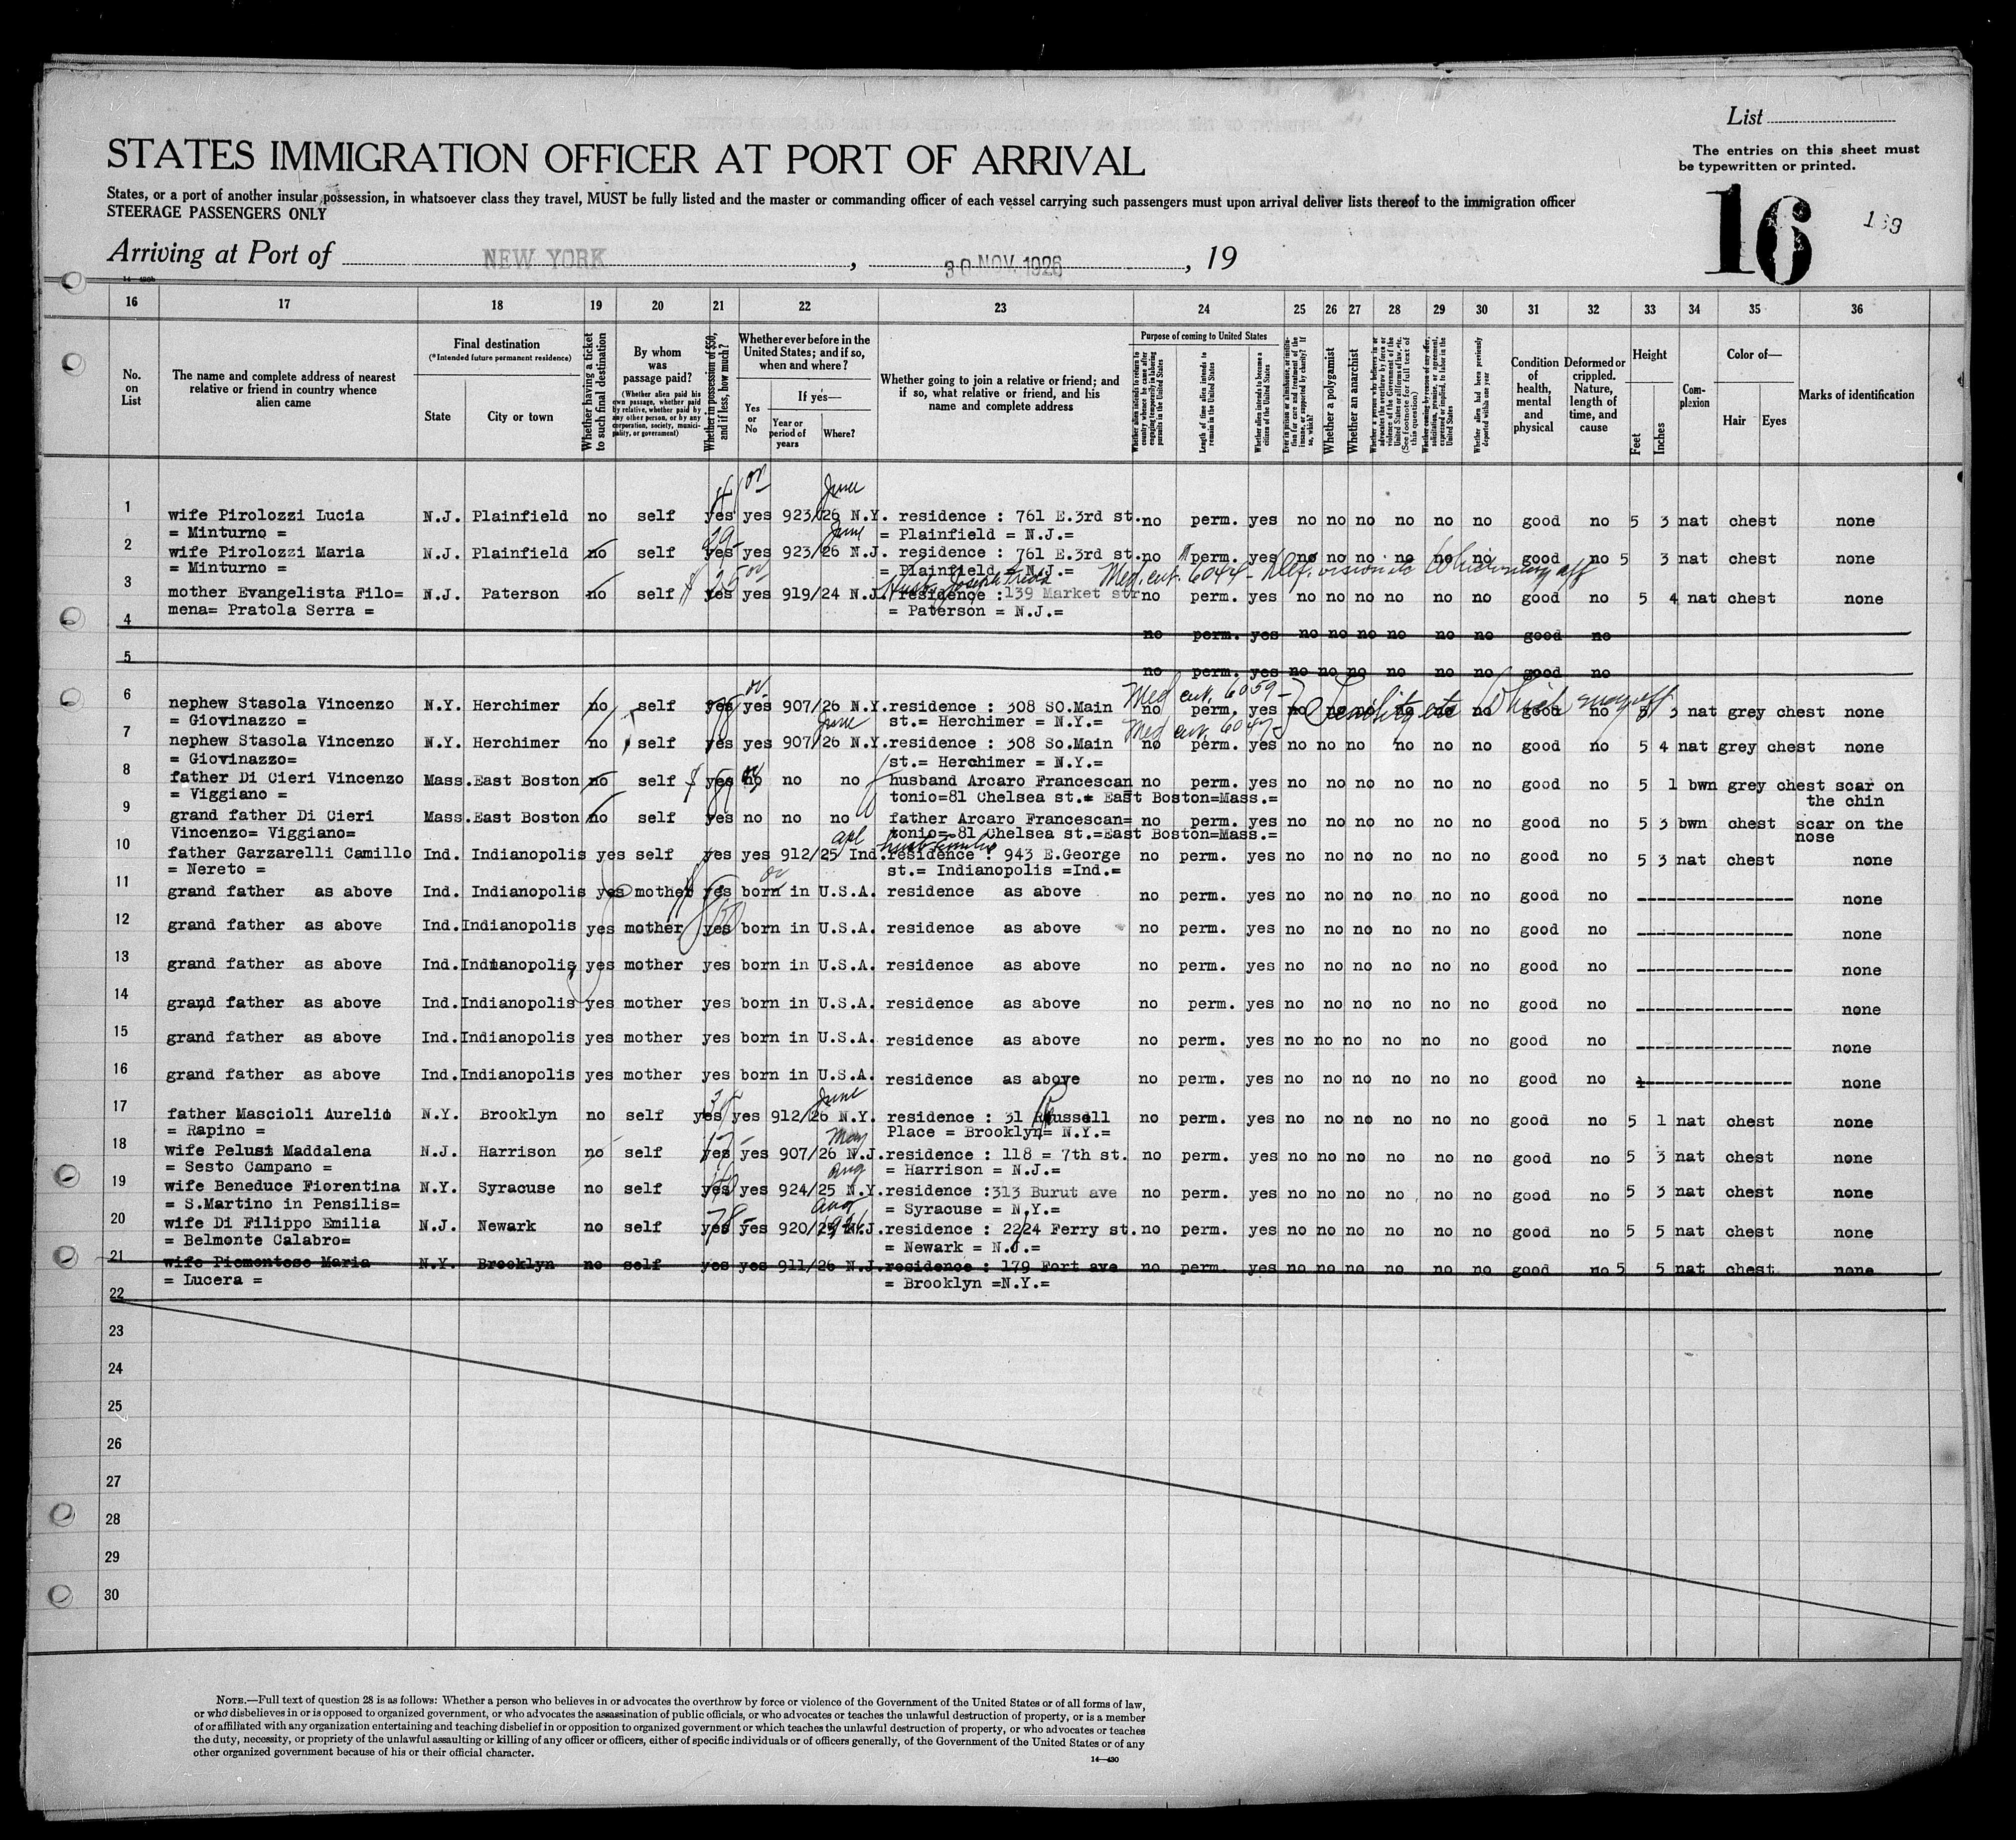 List
The entries on this sheet must
be typewritten or printed.
STATES IMMIGRATION OFFICER AT PORT OF ARRIVAL
States, or a port of another insular possession, in whatsoever class they travel, MUST be fully listed and the master or commanding officer of each vessel carrying such passengers must upon arrival deliver lists thereof to the immigration officer
STEERAGE PASSENGERS ONLY
16
Arriving at Port of NEW YORK, 30 NOV 1926, 19
16 17 18 19 20 21 22 23 24 25 26 27 28 29 30 31 32 33 34 35 36
No. on List
The name and complete address of nearest relative or friend in country whence alien came
Final destination
(*Intended future permanent residence)
State
City or town
Whether having a ticket to such final destination
By whom was passage paid?
(Whether alien paid his own passage, whether paid by relative, whether paid by any other person, or by any corporation, society, municipality, or government)
Whether in possession of $50, and if less, how much?
Whether ever before in the United States; and if so, when and where?
Yes or No
If yes—
Year or period of years
Where?
Whether going to join a relative or friend; and if so, what relative or friend, and his name and complete address
Purpose of coming to United States
Whether alien intends to return to country whence he came after engaging temporarily in laboring pursuits in the United States
Length of time alien intends to remain in the United States
Whether alien intends to become a citizen of the United States
Whether a polygamist
Whether an anarchist
Whether alien had been previously deported within one year
Condition of health, mental and physical
Deformed or crippled. Nature, length of time, and cause
Height
Feet
Inches
Complexion
Color of—
Hair
Eyes
Marks of identification
1 wife Pirolozzi Lucia N.J. Plainfield no self yes yes 923/26 N.Y. residence : 761 E.3rd st. no perm. yes no no no no no no good no 5 3 nat chest none
= Minturno = June = Plainfield = N.J.=
2 wife Pirolozzi Maria N.J. Plainfield no self yes yes 923/26 N.J. residence : 761 E.3rd st. no perm. yes no no no no no no good no 5 3 nat chest none
= Minturno = June = Plainfield = N.J.=
Med. cert. 6044
3 mother Evangelista Filo= N.J. Paterson no self yes yes 919/24 N.J. residence :139 Market str no perm. yes no no no no no no good no 5 4 nat chest none
mena= Pratola Serra = = Paterson = N.J.=
4 no perm. yes no no no no no no good no
5 no perm. yes no no no no no no good no
Med cert. 6059
6 nephew Stasola Vincenzo N.Y. Herchimer no self yes yes 907/26 N.Y. residence : 308 SO.Main no perm. yes no no no no no no good no 5 3 nat grey chest none
= Giovinazzo = st.= Herchimer = N.Y.=
June Med cert. 6047
7 nephew Stasola Vincenzo N.Y. Herchimer no self yes yes 907/26 N.Y. residence : 308 So.Main no perm. yes no no no no no no good no 5 4 nat grey chest none
= Giovinazzo= st.= Herchimer = N.Y.=
8 father Di Cieri Vincenzo Mass. East Boston no self yes no no no husband Arcaro Francescan no perm. yes no no no no no no good no 5 1 bwn grey chest scar on
= Viggiano = tonio=81 Chelsea st.= East Boston=Mass.= the chin
9 grand father Di Cieri Mass. East Boston no self yes no no no father Arcaro Francescan= no perm. yes no no no no no no good no 5 3 bwn chest scar on the
Vincenzo= Viggiano= tonio=81 Chelsea st.=East Boston=Mass.= nose
10 father Garzarelli Camillo Ind. Indianopolis yes self yes yes 912/25 Ind. residence : 943 E.George no perm. yes no no no no no no good no 5 3 nat chest none
= Nereto = st.= Indianopolis =Ind.=
11 grand father as above Ind. Indianopolis yes mother yes born in U.S.A. residence as above no perm. yes no no no no no no good no -------------- none
12 grand father as above Ind. Indianopolis yes mother yes born in U.S.A. residence as above no perm. yes no no no no no no good no -------------- none
13 grand father as above Ind. Indianopolis yes mother yes born in U.S.A. residence as above no perm. yes no no no no no no good no -------------- none
14 grand father as above Ind. Indianopolis yes mother yes born in U.S.A. residence as above no perm. yes no no no no no no good no -------------- none
15 grand father as above Ind. Indianopolis yes mother yes born in U.S.A. residence as above no perm. yes no no no no no no good no -------------- none
16 grand father as above Ind. Indianopolis yes mother yes born in U.S.A. residence as above no perm. yes no no no no no no good no -------------- none
June
17 father Mascioli Aurelio N.Y. Brooklyn no self yes yes 912/26 N.Y. residence : 31 Russell no perm. yes no no no no no no good no 5 1 nat chest none
= Rapino = Place = Brooklyn= N.Y.=
May
18 wife Pelusi Maddalena N.J. Harrison no self yes yes 907/26 N.J. residence : 118 = 7th st. no perm. yes no no no no no no good no 5 3 nat chest none
= Sesto Campano = = Harrison = N.J.=
Aug
19 wife Beneduce Fiorentina N.Y. Syracuse no self yes yes 924/25 N.Y. residence :313 Burut ave no perm. yes no no no no no no good no 5 3 nat chest none
= S.Martino in Pensilis= = Syracuse = N.Y.=
Aug
20 wife Di Filippo Emilia N.J. Newark no self yes yes 920/ N.J. residence : 2224 Ferry st. no perm. yes no no no no no no good no 5 5 nat chest none
= Belmonte Calabro= = Newark = N.J.=
21 wife Piemontese Maria N.Y. Brooklyn no self yes yes 911/26 N.J. residence : 179 Fort ave no perm. yes no no no no no no good no 5 5 nat chest none
= Lucera = = Brooklyn =N.Y.=
22
23
24
25
26
27
28
29
30
NOTE.—Full text of question 28 is as follows: Whether a person who believes in or advocates the overthrow by force or violence of the Government of the United States or of all forms of law,
or who disbelieves in or is opposed to organized government, or who advocates the assassination of public officials, or who advocates or teaches the unlawful destruction of property, or is a member
of or affiliated with any organization entertaining and teaching disbelief in or opposition to organized government or which teaches the unlawful destruction of property, or who advocates or teaches
the duty, necessity, or propriety of the unlawful assaulting or killing of any officer or officers, either of specific individuals or of officers generally, of the Government of the United States or of any
other organized government because of his or their official character.
14—430